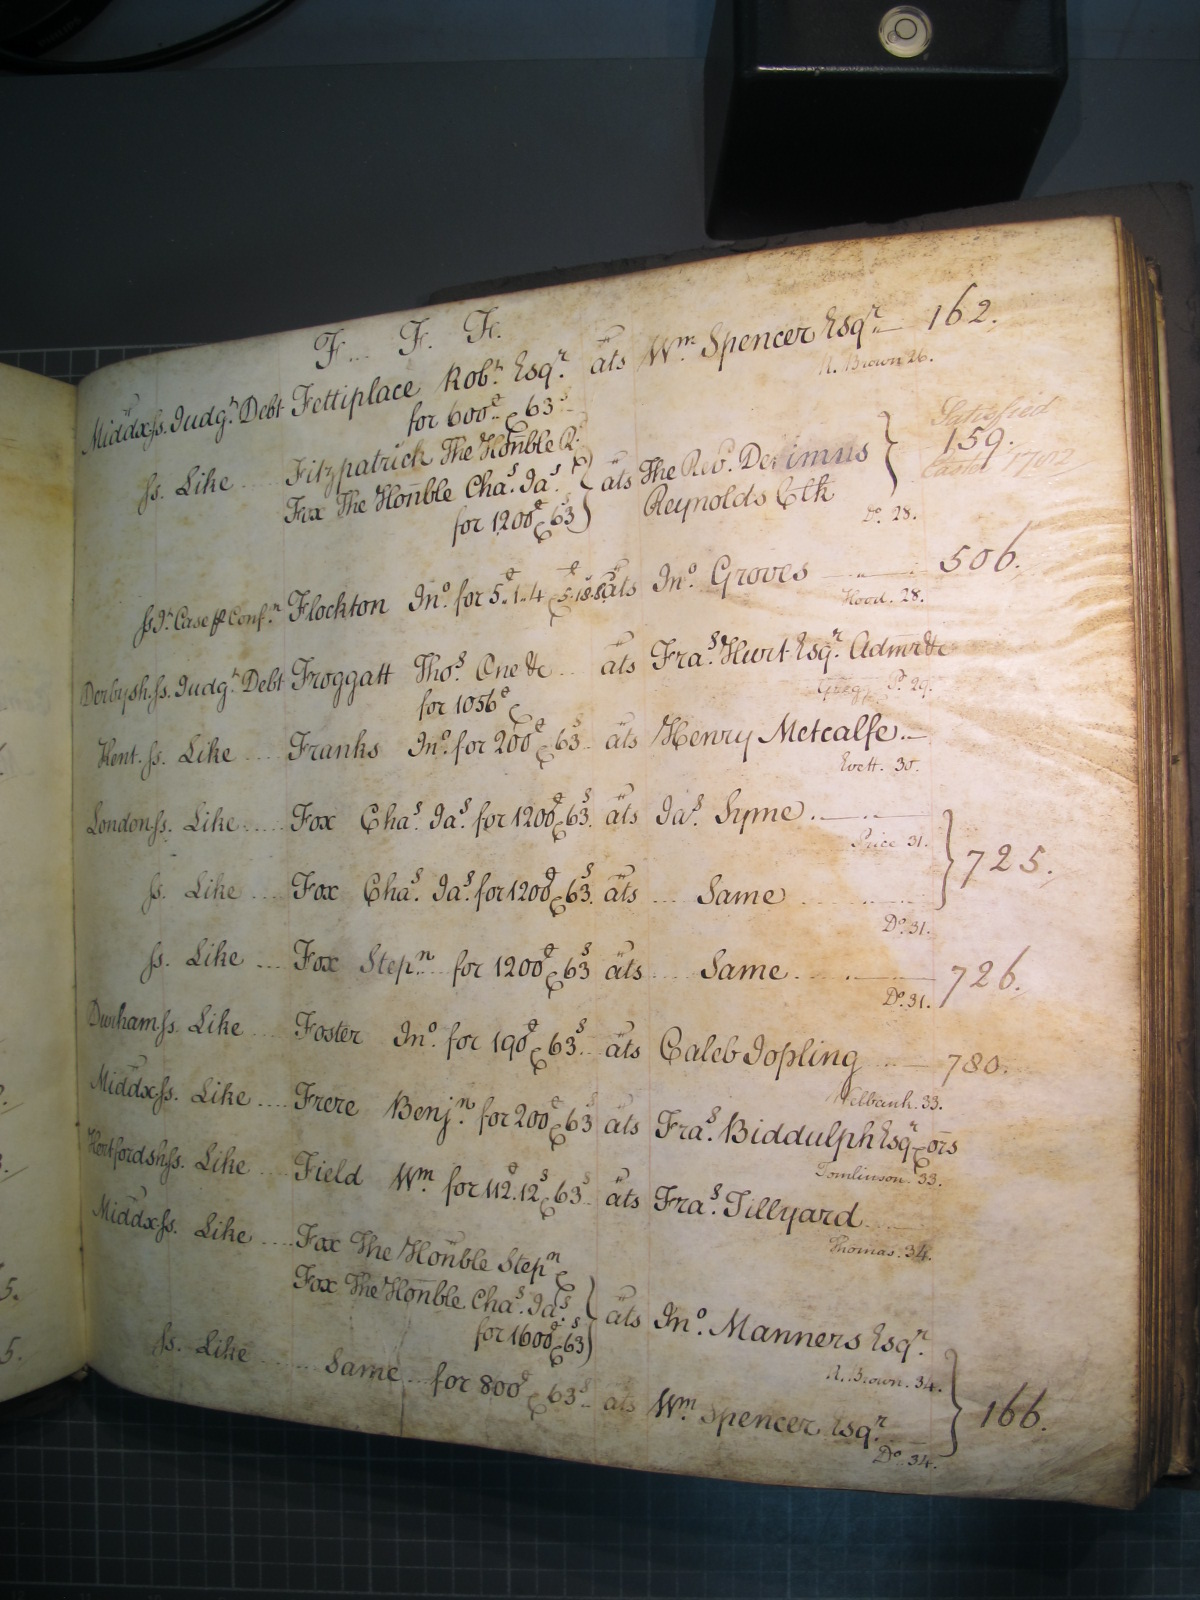 F... F. F.
Middx ſs. Judgt. Debt Fettiplace Robt. Esqr. ats Wm. Spencer Esqr. 162.
for 600£ & 63s R. Brown 26.
ſs. Like Fitzpatrick The Honble R. Satisfied
Fox The Honble Chas. Jas. ats The Revd. Decimus 159.
for 1200£ & 63s Reynolds Clk Easter 1792
Do. 28.
ſs. Jt. Case Conf.n Flockton Jno. for 5.1.4 & 5.18.8 ats Jno. Groves 506.
Hood. 28.
Derbysh. ſs. Judgt. Debt Froggatt Thos. One &c ats Fras. Hurt Esqr. Admr &c
for 1056£ & P. 29.
Kent. ſs. Like Franks Jno. for 200£ & 63s ats Henry Metcalfe.
30.
London ſs. Like Fox Chas. Jas. for 1200£ & 63s ats Jas. Syme.
Price 31. 725.
ſs. Like Fox Chas. Jas. for 1200£ & 63s ats Same
Do. 31.
ſs. Like Fox Stepn. for 1200£ & 63s ats Same 726.
Do. 31.
Durham ſs. Like Foster Jno. for 190£ & 63s ats Caleb Jopling 780.
33.
Middx ſs. Like Frere Benjn. for 200£ & 63s ats Fras. Biddulph Esqr & ors
Tomlinson. 33.
Hertfordsh ſs. Like Field Wm. for 112.12s & 63s ats Fras. Tillyard
Thomas. 34.
Middx ſs. Like Fox The Honble Stepn &
Fox The Honble Chas. Jas. ats Jno. Manners Esqr.
for 1600£ & 63s R. Brown. 34.
ſs. Like Same for 800£ & 63s ats Wm. Spencer Esqr. 166.
Do. 34.